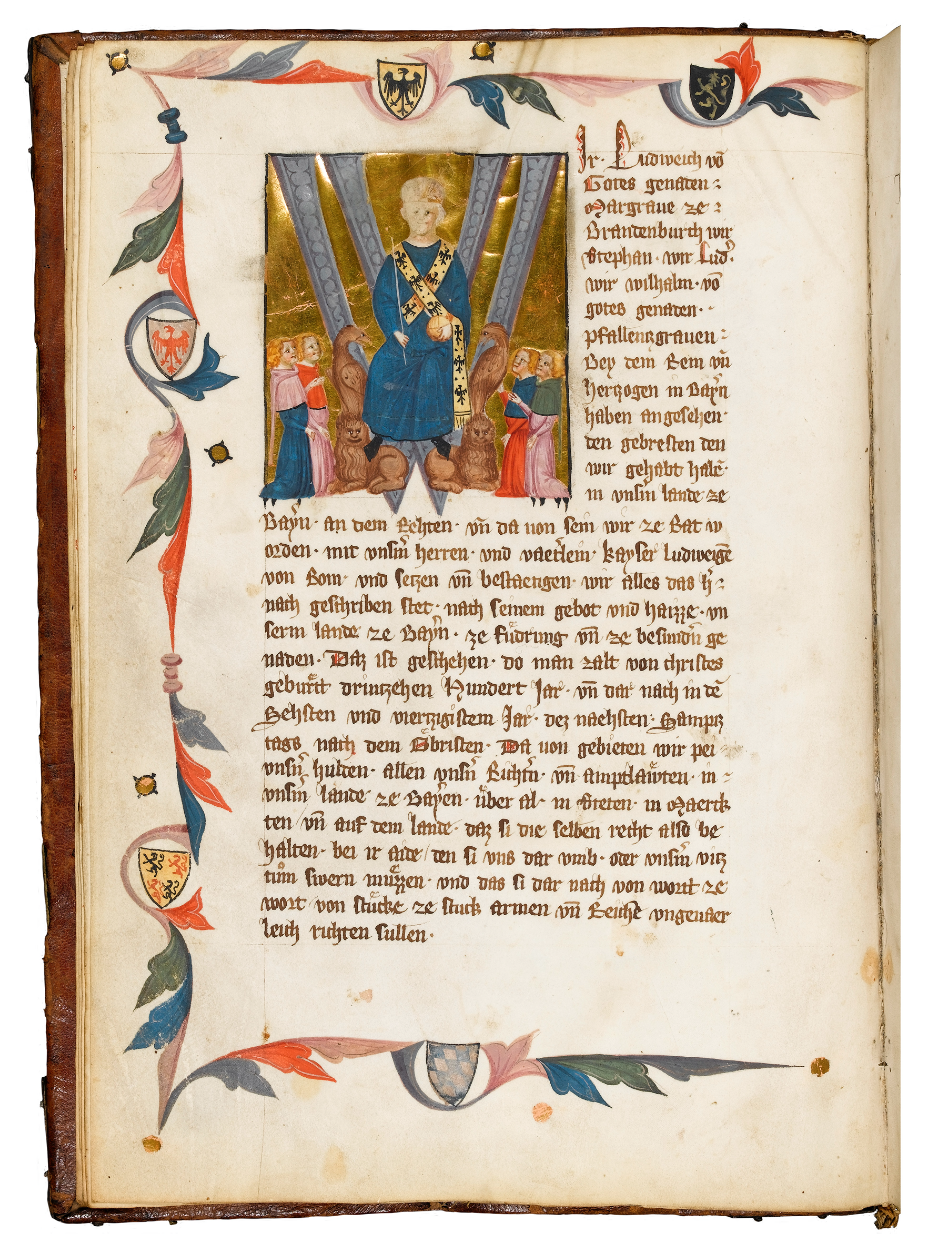 Ir. Ludweich vō
Gotes genaten :
Margraue ze :
Brandenburch wir
Stephan . wir Lud .
wir wilhalm . vō
gotes genaten . .
pfallentzgrauen :
Bey dem Rein vn̄
hertzogen in Bayr̄n
haben angesehen .
den gebresten den
wir gehabt habē .
in vnsm̄ lande ze
Bayr̄n . an dem Rehten . vn̄ da uon sein wir ze Rat w
orden . mit vnsm̄ herren . vnd vaetͤrlein . kayser ludweigē
von Rom . vnd setzen vn̄ bestaetigen . wir alles das h̄ :
nach geschriben stet . nach seinem gebot vnd haizze . vn
serm lande ze Bayr̄n . ze fuͤdrung vn̄ ze besundn̄ ge
naden . Daz ist geschehen . do man zalt von christes
geburtt drintzehen Hundert Jar . vn̄ dar nach in dē
Sehsten vnd viertzigistem Jar . dez naehsten . Samptz
tags nach dem Obristen . Da uon gebieten wir pei .
vnsn̄ hulden . allen vnsn̄ Richtn̄ . vn̄ amptlaͤwten . in :
vnsm̄ lande ze Bayren . uͤber al . in Steten . in Maerck
ten / vn̄ auf dem lande . daz si die selben recht also be
halten . bei ir aide / den si vns dar vmb . oder vnsm̄ vitz
tuͦm swern muͤzzen . vnd das si dar nach von wort ze
wort . von stuͤcke ze stuck armen vn̄ Reichē vngeuaer
leich richten sullen .